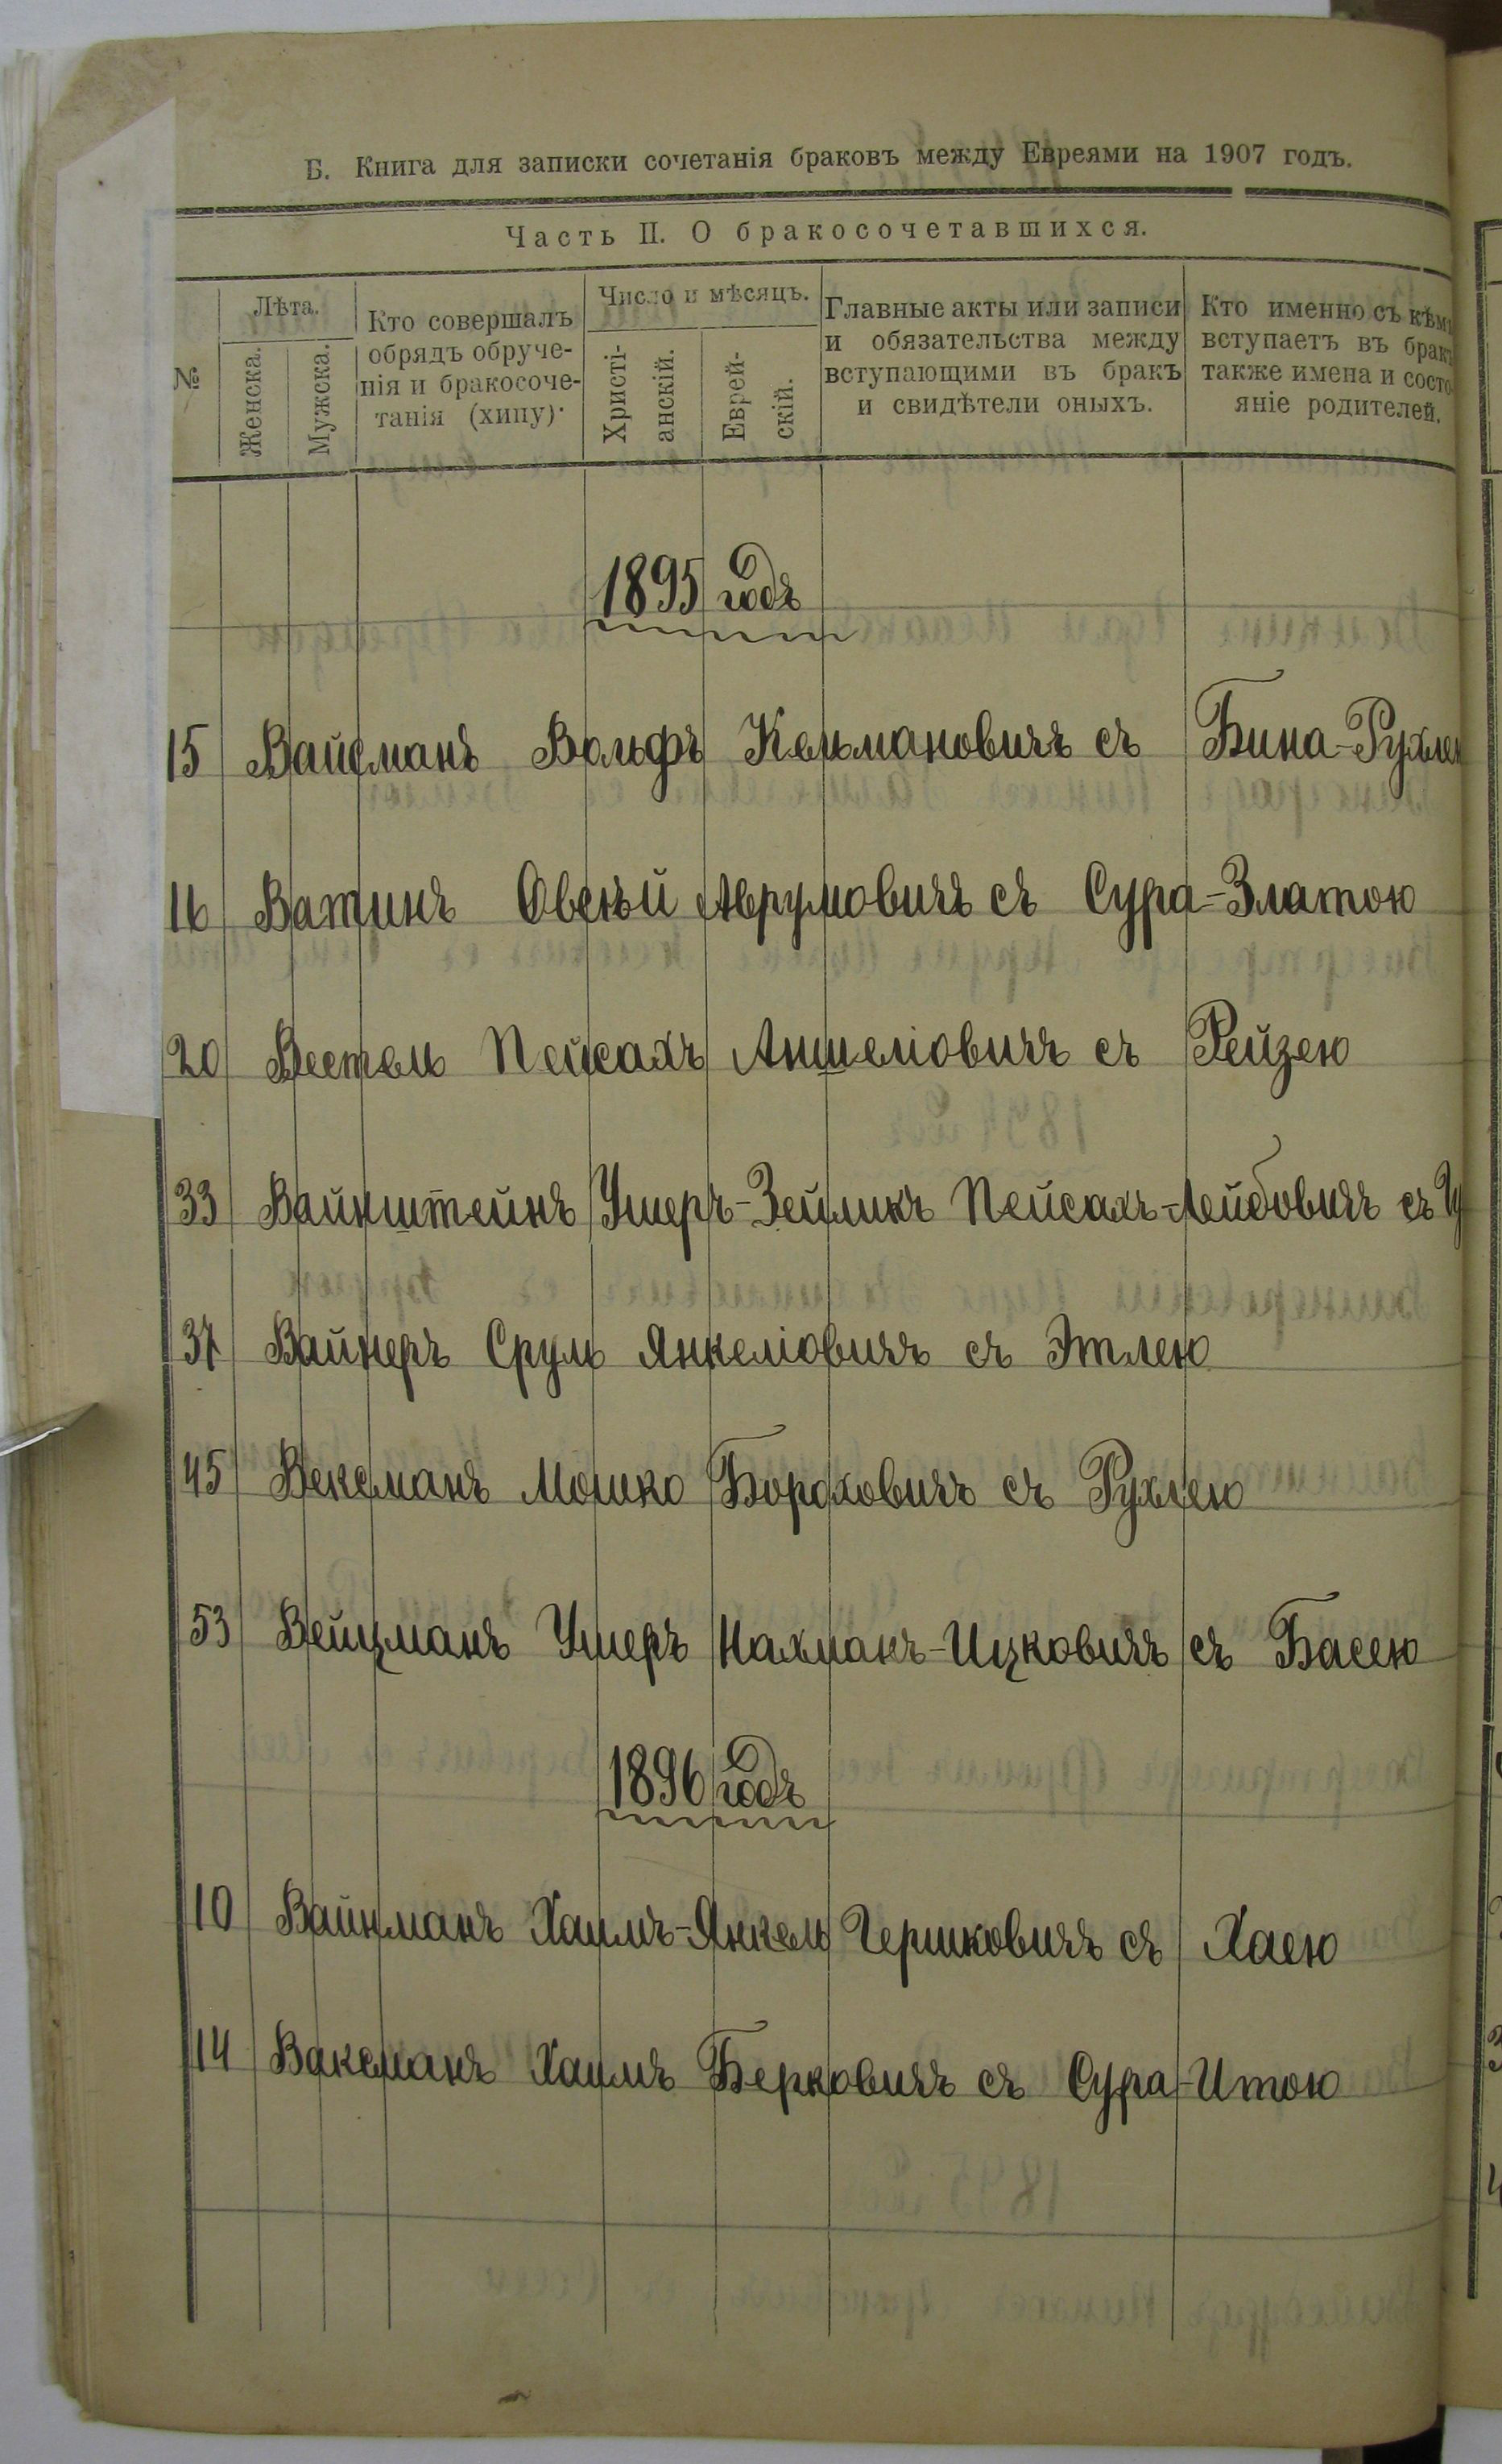 Б. Книга для записки сочетанія браковъ между Евреями на 1907 годъ.
Часть II. О бракосочетавшихся.
№
Лѣта.
Женска.
Мужска.
Кто совершалъ
обрядъ обруче-
нія и бракосоче-
танія (хипу).
Число и мѣсяцъ.
Христі-
анскій.
Еврей-
скій.
Главные акты или записи
и обязательства между
вступающими въ бракъ
и свидѣтели оныхъ.
Кто именно съ кѣмъ
вступаетъ въ бракъ
также имена и состо-
яніе родителей.
1895 годъ
15 Вайсманъ Вольфъ Кельмановичъ съ Бина-Рухлею
16 Ватинъ Овсѣй Аврумовичъ съ Сура-Златою
20 Вестель Пейсахъ Аншеліовичъ съ Рейзею
33 Вайнштейнъ Ушеръ-Зейликъ Пейсахъ-Лейбовичъ съ
37 Вайнеръ Сруль Янкеліовичъ съ Этлею
45 Вексманъ Мошко Бороховичъ съ Рухлею
53 Вейцманъ Ушеръ Нахманъ-Ицковичъ съ Басею
1896 годъ
10 Вайнманъ Хаимъ-Янкель Гершковичъ съ Хаею
14 Ваксманъ Хаимъ Берковичъ съ Сура-Итою